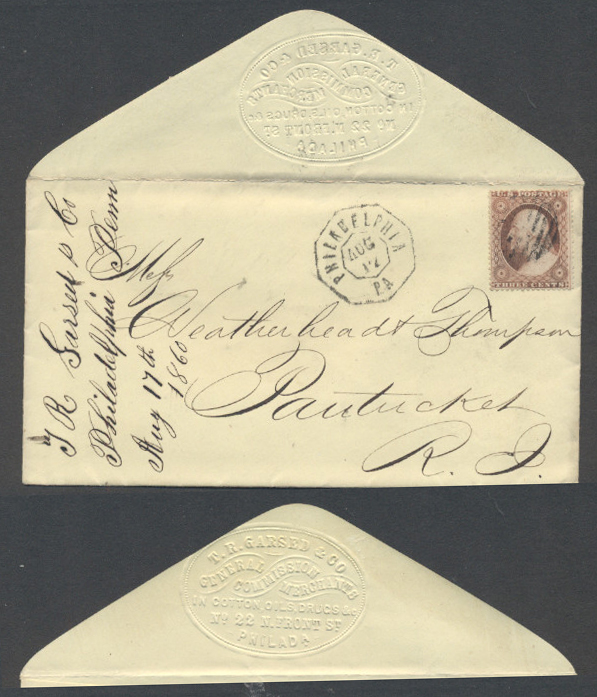 T. R. GARSED & CO
GENERAL
COMMISSION
MERCHANTS
IN COTTON, OILS, DRUGS &c
No 22 N. FRONT St
PHILADA
T R Garsed & Co
Philadelphia Penn
Aug 17th
1860
PHILADELPHIA
AUG
17
PA
U.S. POSTAGE
THREE CENTS
Mess
Weatherhead & Thompson
Pautucket
R. I.
T. R. GARSED & CO
GENERAL
COMMISSION
MERCHANTS
IN COTTON, OILS, DRUGS &c
No 22 N. FRONT St
PHILADA